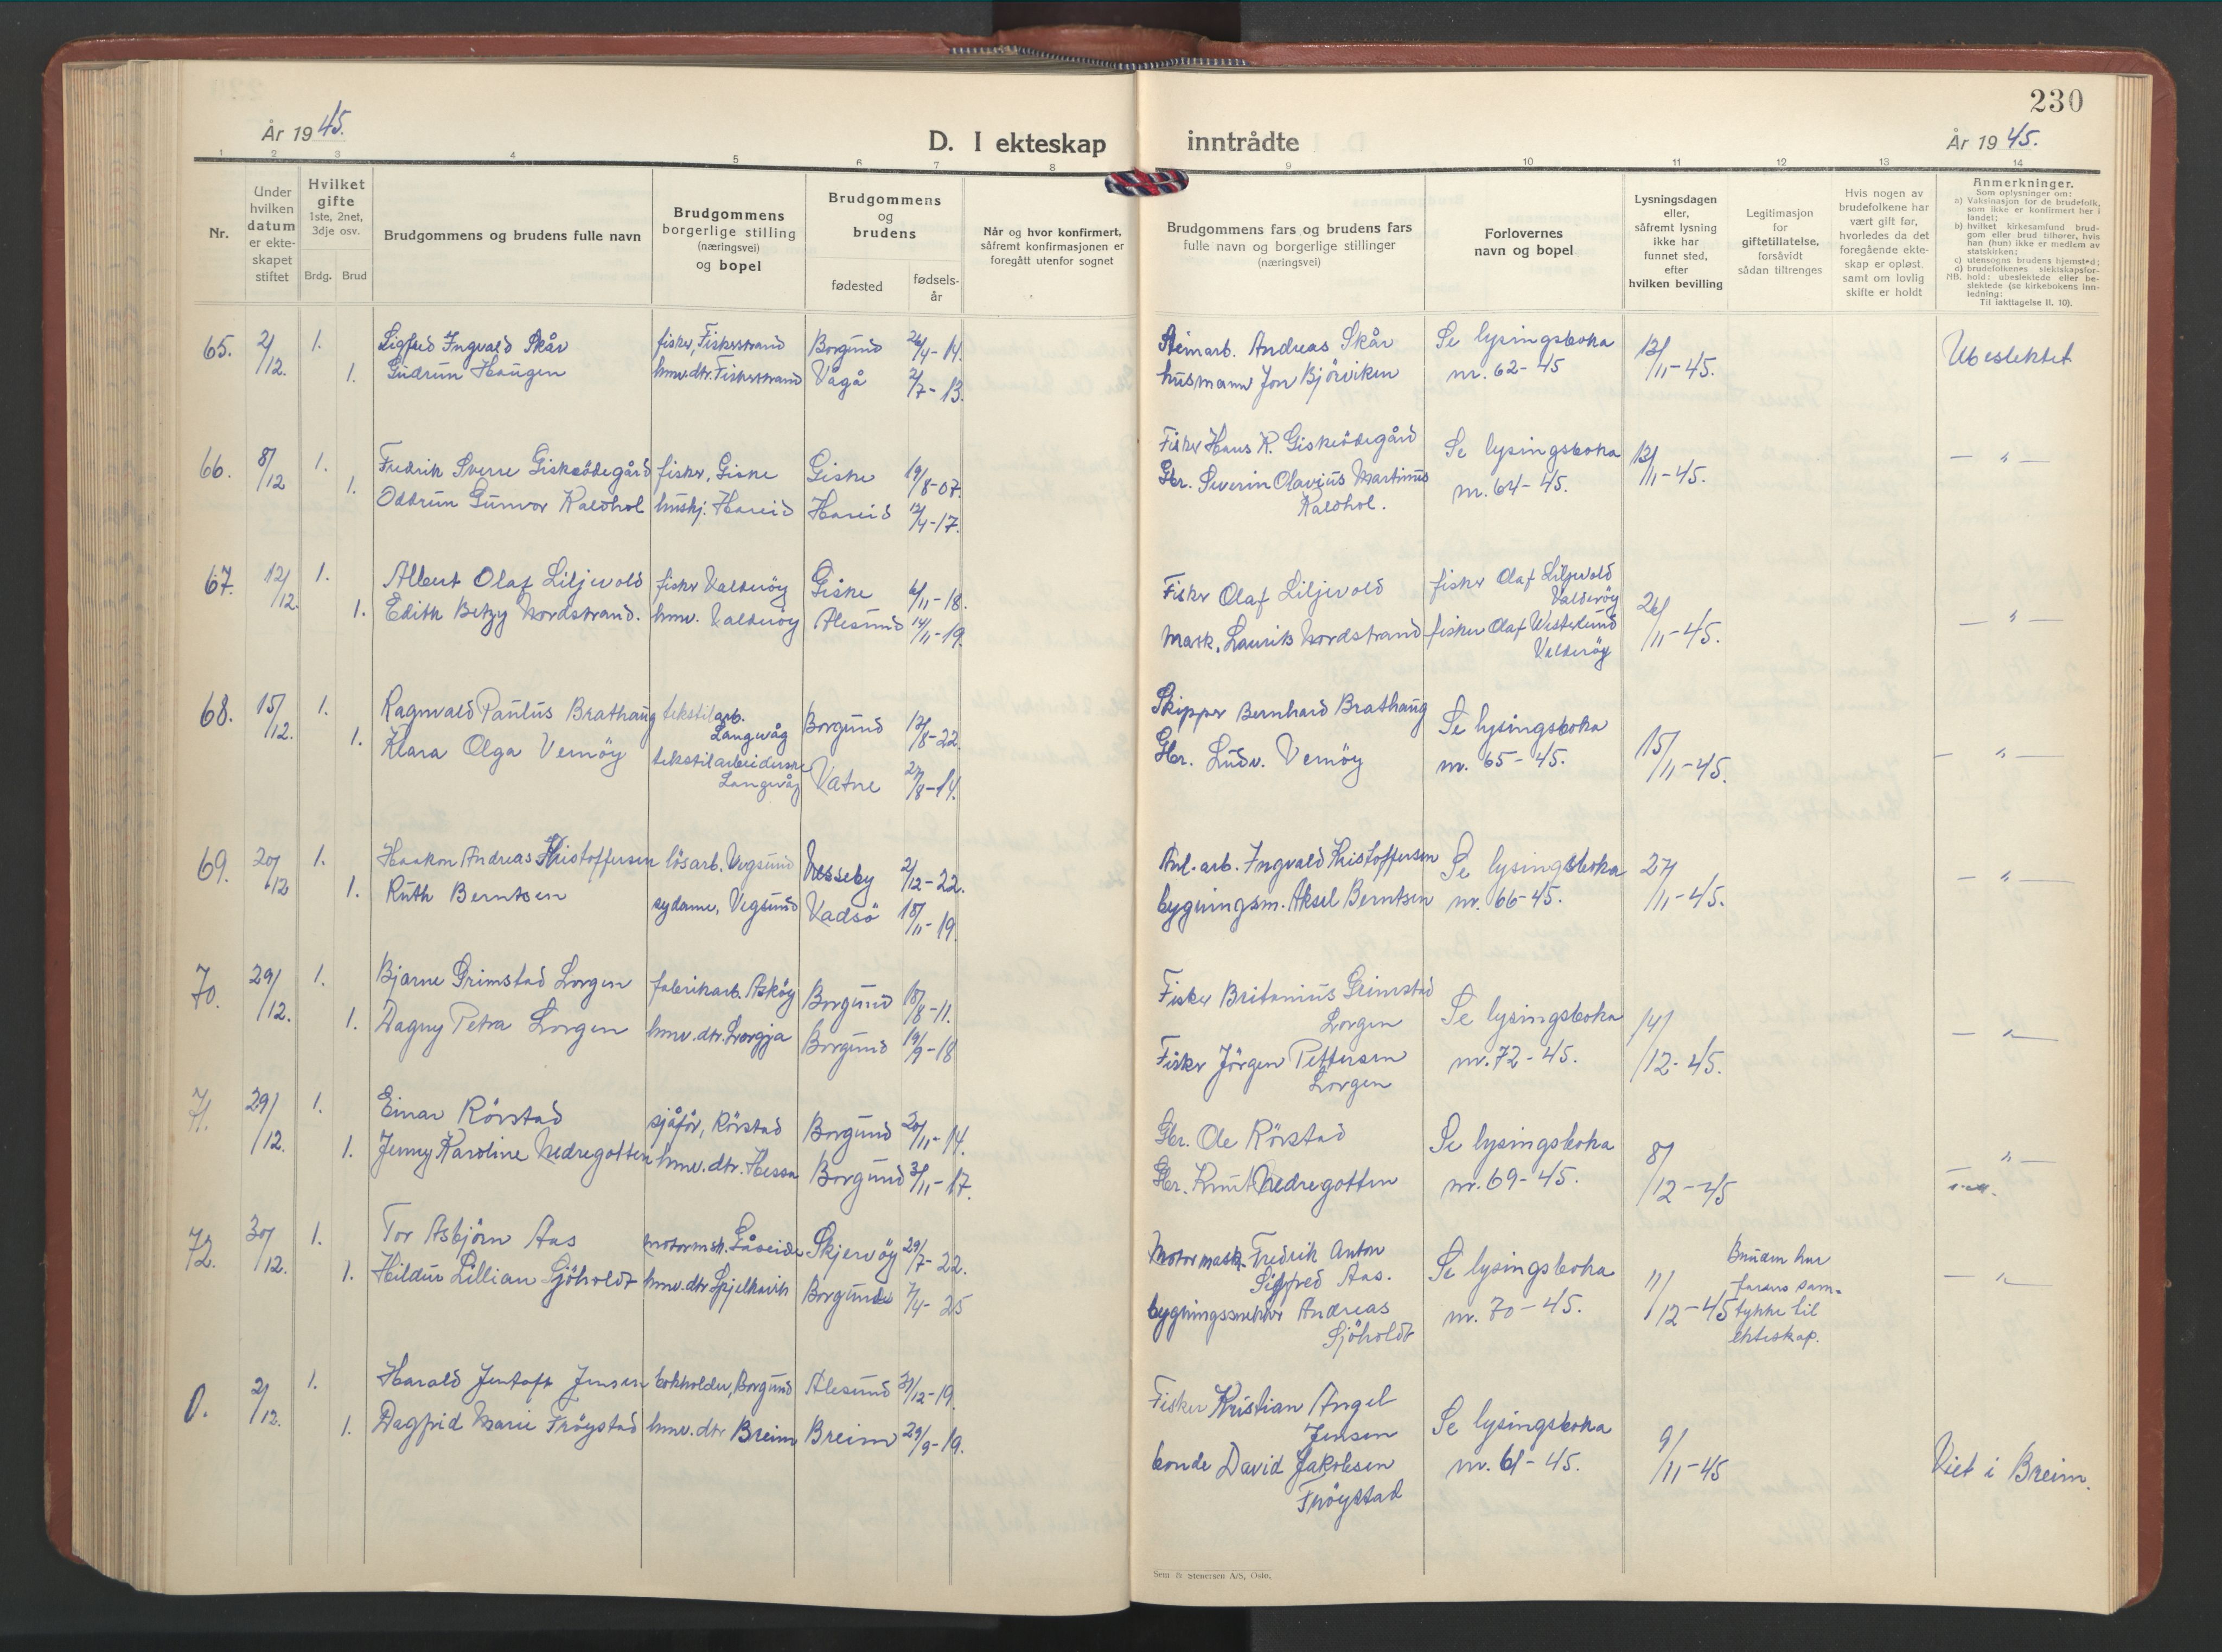 230
År 1945.
D. I ekteskap inntrådte
År 1945.
1 2 3 4 5 6 7 8 9 10 11 12 13 14
Nr.
Under hvilken datum er ekteskapet stiftet
Hvilket gifte 1ste, 2net, 3dje osv.
Brdg. Brud
Brudgommens og brudens fulle navn
Brudgommens borgerlige stilling (næringsvei) og bopel
Brudgommens og brudens
fødested
fødselsår
Når og hvor konfirmert, såfremt konfirmasjonen er foregått utenfor sognet
Brudgommens fars og brudens fars fulle navn og borgerlige stillinger (næringsvei)
Forlovernes navn og bopel
Lysningsdagen eller, såfremt lysning ikke har funnet sted, efter hvilken bevilling
Legitimasjon for giftetillatelse, forsåvidt sådan tiltrenges
Hvis nogen av brudefolkene har vært gift før, hvorledes da det foregående ekteskap er opløst, samt om lovlig skifte er holdt
Anmerkninger.
Som oplysninger om:
a) Vaksinasjon for de brudefolk, som ikke er konfirmert her i landet;
b) hvilket kirkesamfund brudgom eller brud tilhører, hvis han (hun) ikke er medlem av statskirken;
c) utensogns brudens hjemsted;
d) brudefolkenes slektskapsforhold: ubeslektede eller beslektede (se kirkebokens innledning:
NB. Til iakttagelse II. 10).
65. 2/12. 1. Sigfred Ingvald Skår fisker, Fiskerstrand Borgund 26/4-14. Steinarb. Andreas Skår Se lysingsboka 12/11-45. Ubeslektet
1. Gudrun Haugen hmv.dtr. Fiskerstrand Vågå 2/7-13. husmann Jon Bjørviken nr. 62-45
66. 8/12 1. Fredrik Sverre Giskeødegård fisker, Giske Giske 19/8-07. Fisker Hans K. Giskeødegård Se lysingsboka 12/11-45. — " —
1. Oddrun Gunvor Kaldhol hushj. Hareid Hareid 12/4-17. Gbr. Severin Olavius Martinus nr. 64-45.
Kaldhol.
67. 12/12. 1. Albert Olaf Liljevold fisker Valderøy Giske 6/11-18. Fisker Olaf Liljevold fisker Olaf Liljevold
Valderøy 26/11-45. — " —
1. Edith Betzy Nordstrand. hmv. Valderøy Ålesund 14/11-19. Mask. Laurits Nordstrand fisker Olaf Vesterlund
Valderøy
68. 15/12. 1. Ragnvald Paulus Brathaug tekstilarb.
Langevåg Borgund 12/8-22. Skipper Bernhard Brathaug Se lysingsboka 15/11-45. — " —
1. Klara Olga Vernøy tekstilarbeiderske
Langevåg Vatne 27/8-14. Gbr. Ludv. Vernøy nr. 65-45.
69. 20/12 1. Haakon Andreas Kristoffersen løsarb. Vegsund Nesseby 2/12-22. Anl.arb. Ingvald Kristoffersen Se lysingsboka 27/11-45. — " —
1. Ruth Berntsen sydame, Vegsund Vadsø 18/11-19. bygningsm. Aksel Berntsen nr. 66-45.
70. 29/12. 1. Bjarne Grimstad Lorgen fabrikarb. Askøy Borgund 18/8-11. Fisker Britanius Grimstad
Lorgen Se lysingsboka 14/12-45. — " —
1. Dagny Petra Lorgen hmv.dtr. Lorgja Borgund 19/9-18 Fisker Jörgen Pettersen nr. 72-45.
Lorgen
71. 29/12. 1. Einar Rörstad sjåfør, Rörstad Borgund 20/11-14. Gbr. Ole Rörstad Se lysingsboka 8/12-45 " —
1. Jenny Karoline Nedregotten hmv.dtr. Hessa Borgund 3/11-17. Gbr. Knut Nedregotten nr. 69-45.
72. 30/12. 1. Tor Asbjörn Aas motormsk. Gåseide Skjervøy 29/7-22. Motormask. Fredrik Anton
Sigfred Aas. Se lysingsboka 11/12-45 Bruden har farens samtykke til ekteskap. — " —
1. Hildur Lillian Sjöholdt hmv.dtr Spjelkavik Borgund 7/4-25 bygningssnekker Andreas nr. 70-45.
Sjöholdt
0. 2/12. 1. Harald Jentoft Jensen bokholder, Borgund Ålesund 31/12-19. Fisker Kristian Angel
Jensen Se lysingsboka 9/11-45 Viet i Breim.
1. Dagfrid Marie Frøystad hmv.dtr Breim Breim 29/9-19. bonde David Jakobsen nr. 61-45.
Frøystad
Sem & Stenersen A/S, Oslo.